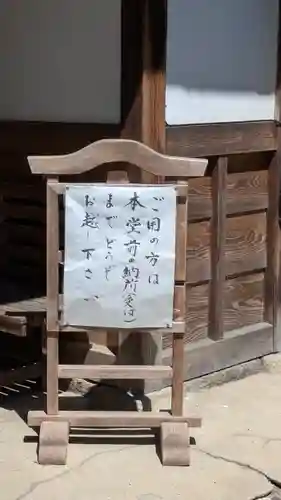 ご用の方は
本堂前の納所(受付)
までどうぞ
お越し下さい